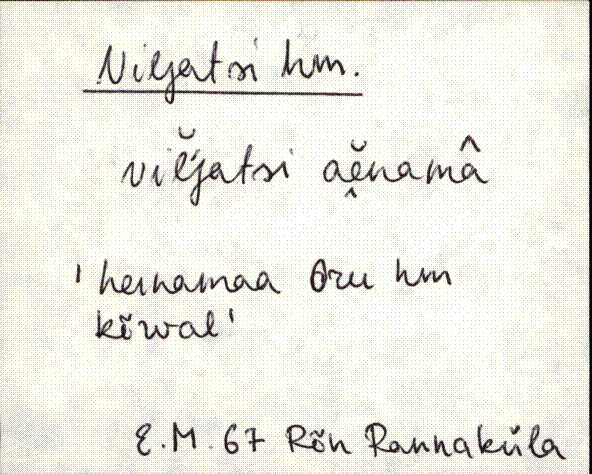 Viljatsi hm.
vil̆jatsi aḙ̆namâ
'heinamaa Oru hm
kõwal'
E.M. 67 Rõn Rannaküla